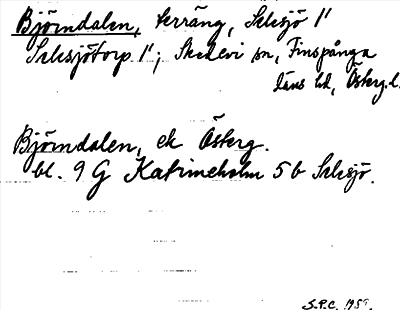 Björndalen, terräng, Skesjö 1'
Skesjötorp 1'; Skedevi sn, Finspånga
läns hd, Österg. l.
Björndalen, ek Österg.
bl. 9 G Katrineholm 5 b Skesjö.
S.P.C. 1959.